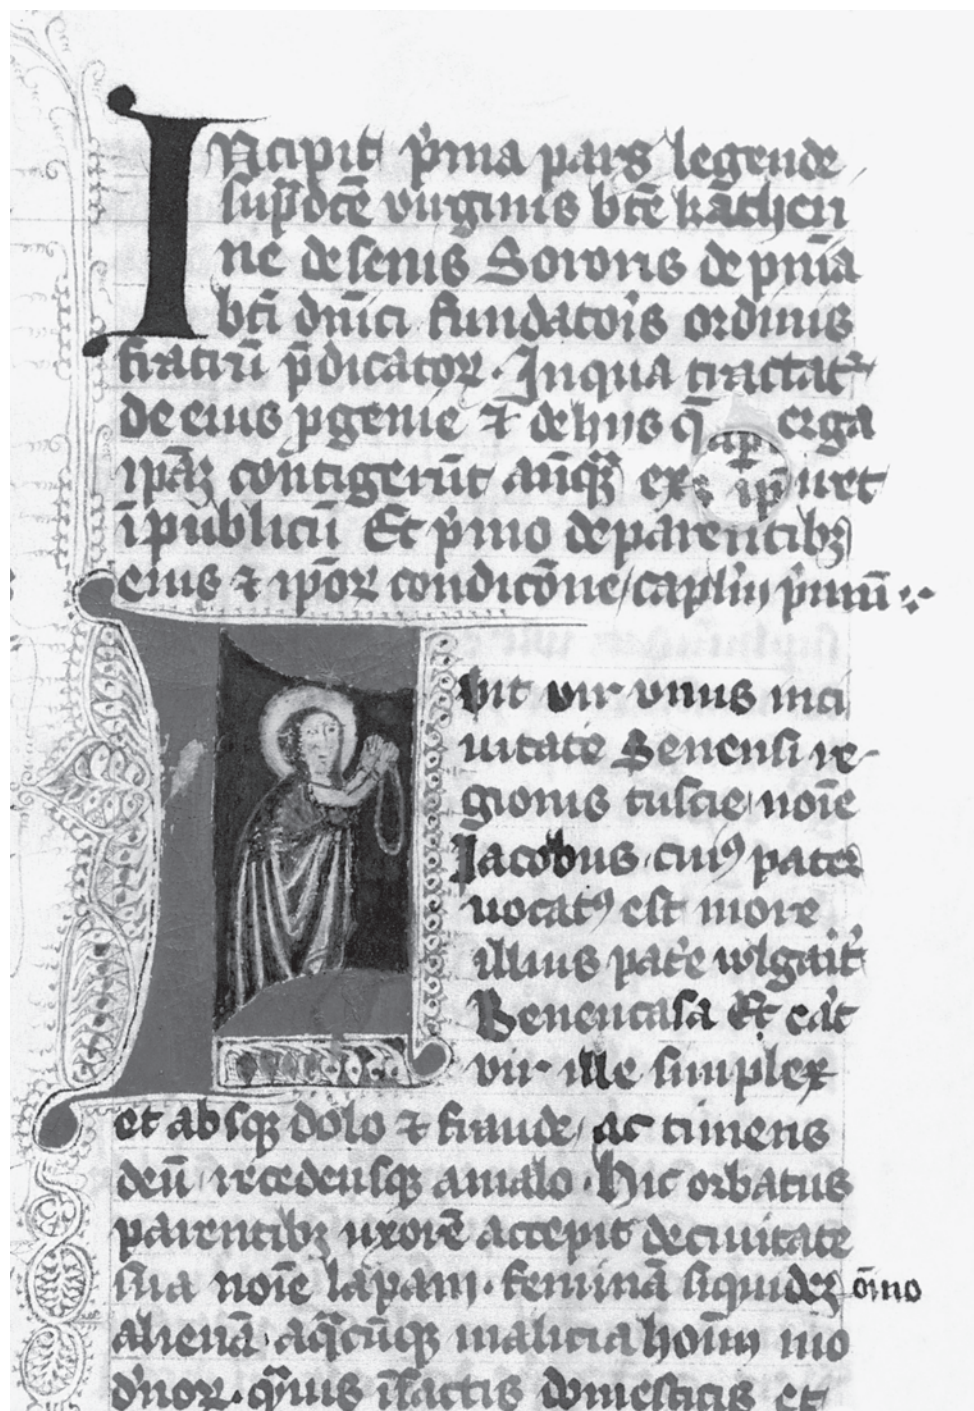 Incipit p̓ma pars legende
sup̓dc̄e virginis bt̄e kath̄eri
ne de senis Sororis de pnīa
bt̄i dn̄ici fundator̓is ordinis
fratrū p̄dicatoꝝ. In qua tractat᷑
de eius ꝓgenie ⁊ de hijs q̄ erga
ip̄aꝫ contigerūt anteq̄ꝫ
ī publicū Et p̓mo de parentibꝫ
eius ⁊ ip̄oꝝ condicōne / capl̓m p̓mū
Fuit vir vnus in ci
uitate Senensi re
gionis tuscie noīe
Jacobus cuiꝰ pater
uocatꝰ est more
illius pat̓e wlgarit̓
Benencasa Et er̓at
vir ille simplex
et absqꝫ dolo ⁊ fraude / ac timens
deū recedensqꝫ a malo. Hic orbatus
parentibꝫ uxorē accepit de ciuitate
sua noīe lapam. feminā siquideꝫ om̄ino
alienā a q̄cūqꝫ malicia hoīm mo
d̓noꝝ. q̄uis ī factis domesticis et